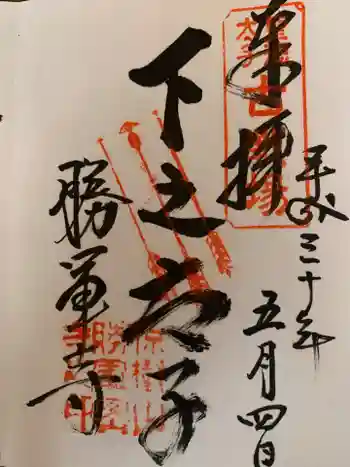 奉拝
平成三十年
五月四日
下之太子
勝軍寺